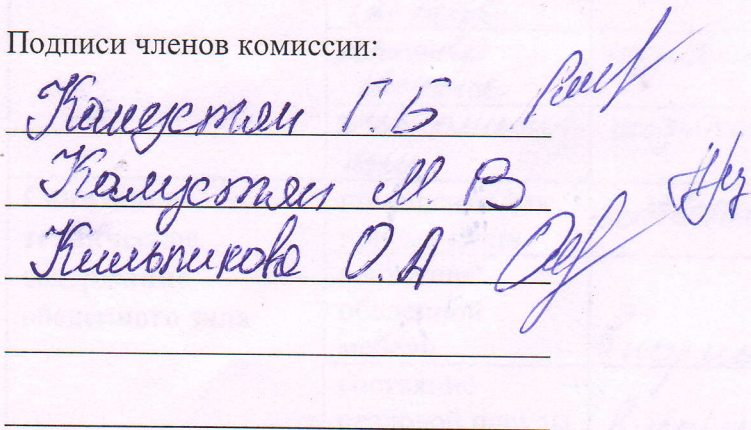 Подписи членов комиссии:
Калустян Г.Б
Калустян М. В
Кильпикова О.А